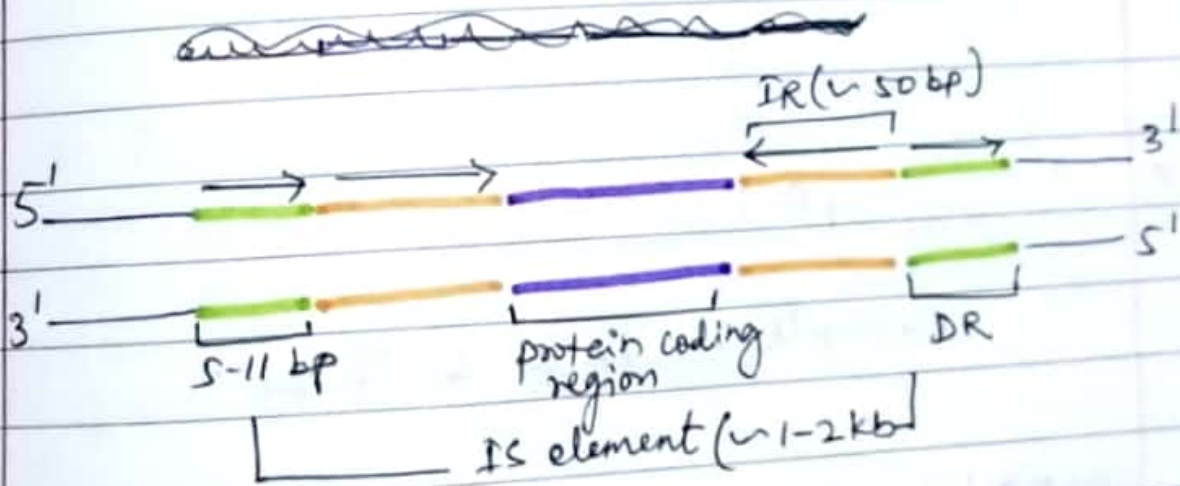 IR (~ 50 bp)
5' 3'
3' 5'
5-11 bp protein coding region DR
IS element (~ 1-2 kb